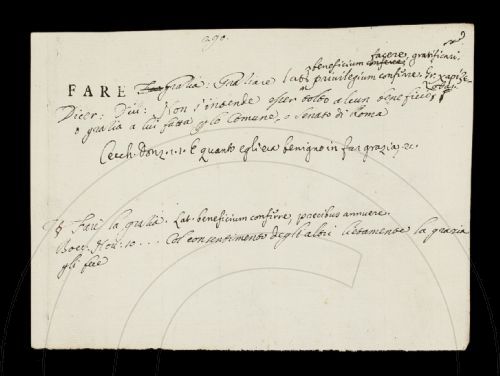 290.
facere, gratificari,
beneficium conferre
FARE Grazia: Graziare Lat. privilegium conferre. Gr. χαρίζε
σθαι
Dicer: Div: Non s'intende esser dolto alcun benefices
o grazia a lui fatta per lo Comune, o Senato di Roma
Cecch. Donz. 1. 1. E quanto egli era benigno in far grazia, ec.
§ Fare la grazia. Lat. beneficium conferre, precibus annuere.
Bocc. Nov: 10 ... Col consentimento degli altri lietamente la grazia
gli fece